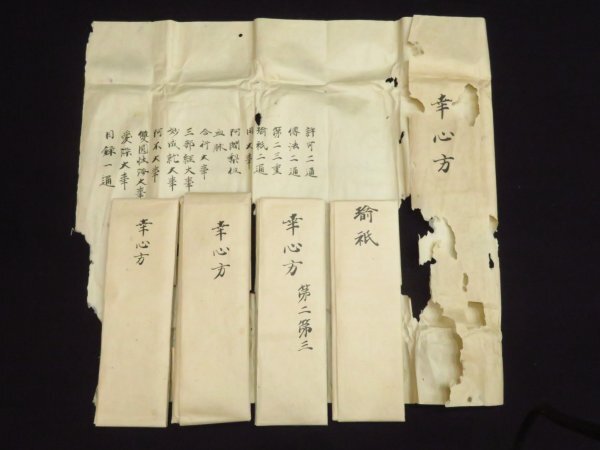 幸心方
許可二通
傳法二通
第二三重
瑜祇二通
田太事
阿闍梨位
血脉
合行大事
三部経大事
妙成就大事
阿不大事
愛際大事
目録一通
瑜祇
幸心方
第二第三
幸心方
幸心方